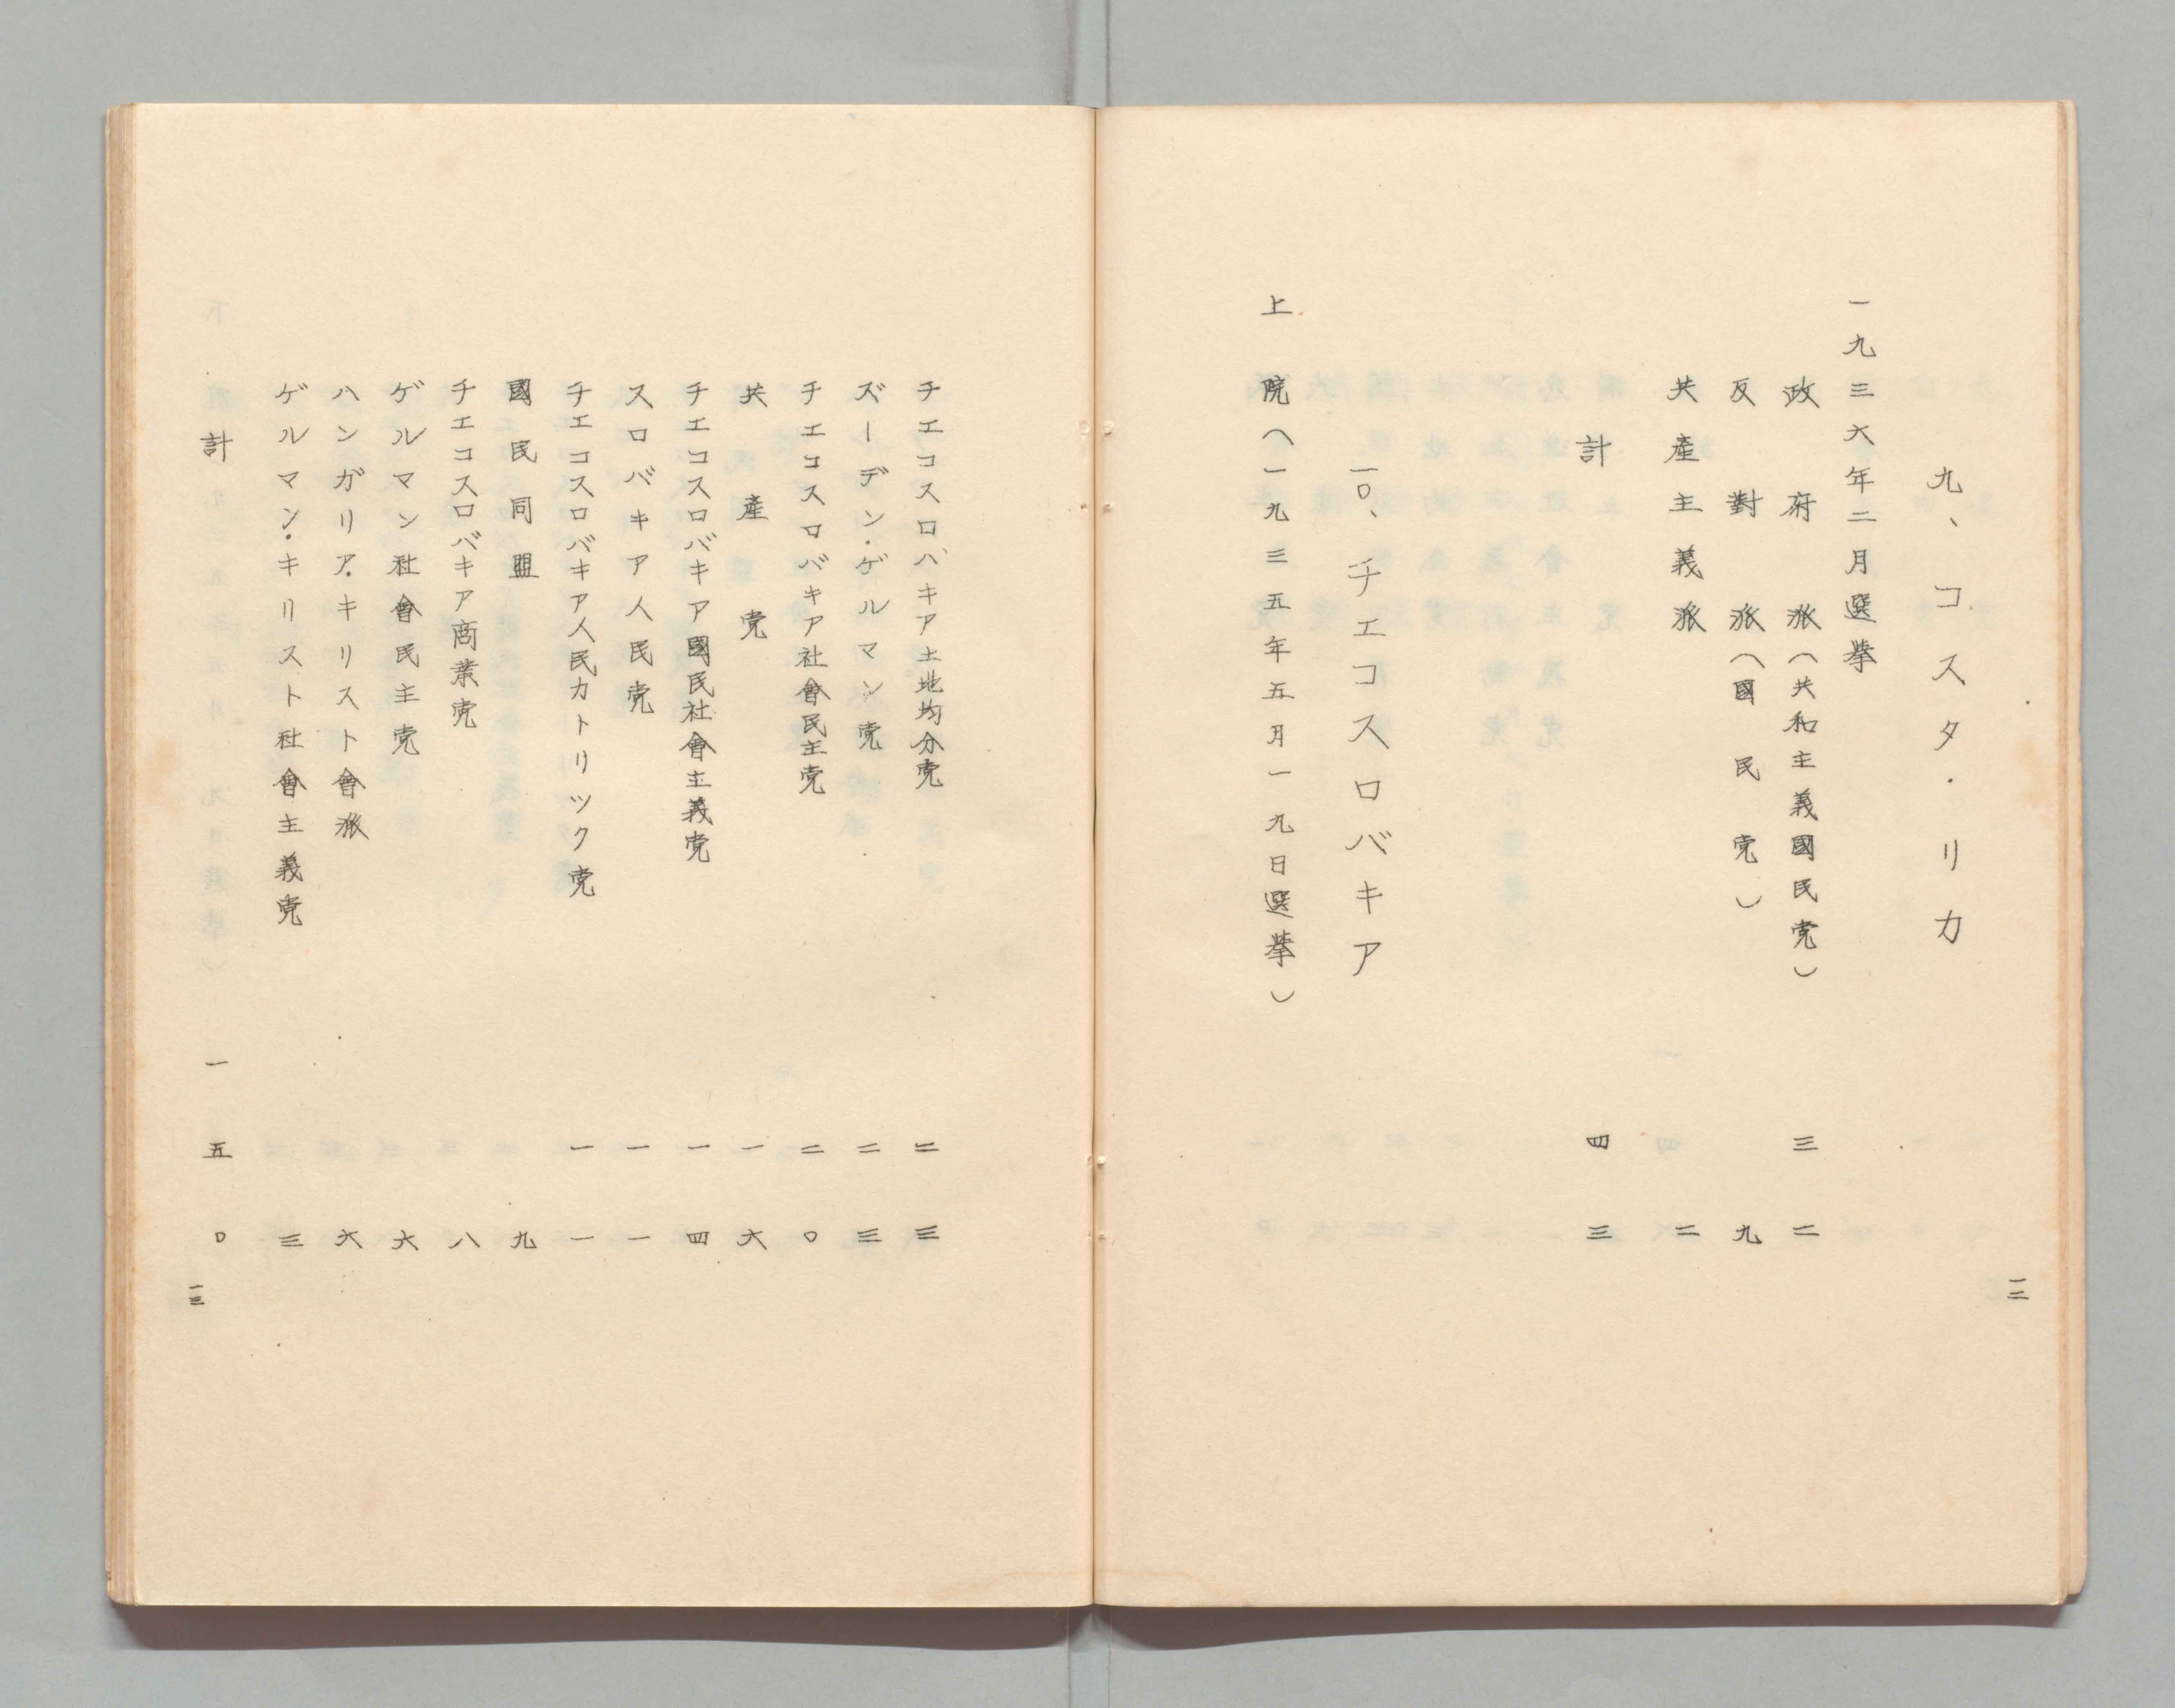 九、コスタ・リカ
一九三六年二月選挙
政府派(共和主義國民党) 三二
反對派(國民党) 九
共産主義派 二
計 四三
一〇、チェコスロバキア
上院(一九三五年五月一九日選挙)
一二
チエコスロバキア土地均分党 二三
ズーデン・ゲルマン党 二三
チエコスロバキア社會民主党 二〇
共産党 一六
チエコスロバキア國民社會主義党 一四
スロバキア人民党 一一
チエコスロバキア人民カトリツク党 一一
國民同盟 九
チエコスロバキア商業党 八
ゲルマン社會民主党 六
ハンガリア・キリスト會派 六
ゲルマン・キリスト社會主義党 三
計 一五〇
一三